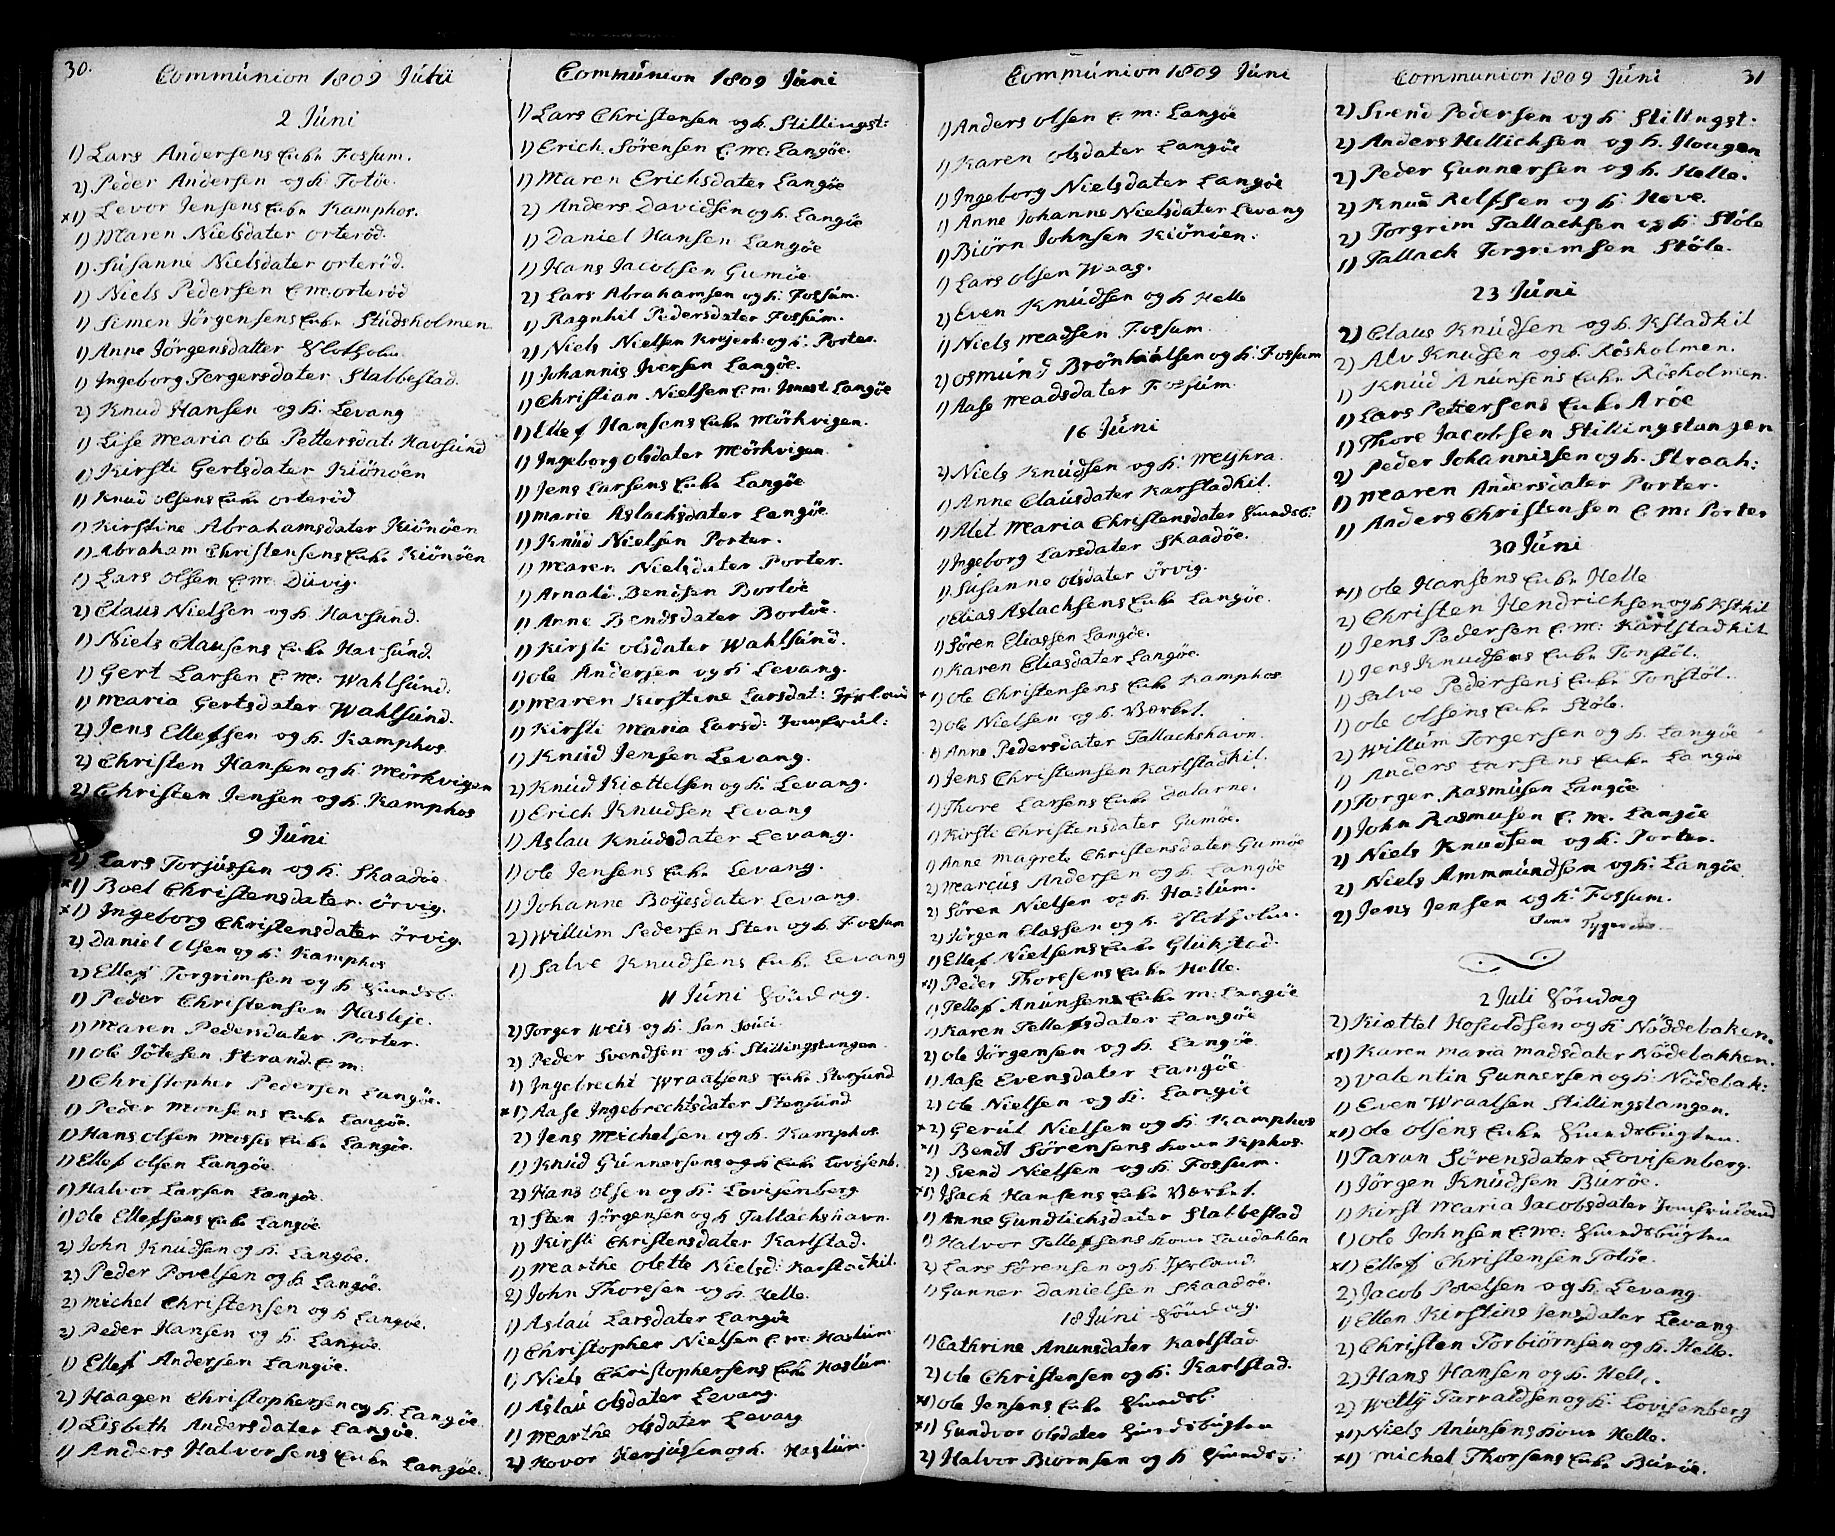 30.
Communion 1809 Juni
2 Juni
1) Lars Andersens Enke Fossum.
2) Peder Andersen og k. Totøe.
×1) Levor Jensens Enke Kamphos.
1) Maren Nielsdater Orterød.
1) Susanne Nielsdater Orterød.
1) Niels Pedersen E.m. Orterød
1) Simen Jørgensens Enke Studsholmen
1) Anne Jørgensdatter Slotholm
1) Ingeborg Torgersdater Stabbestad.
2) Knud Hansen og k. Levang
1) Lise Maria Ole Pettersdat: Havsund
1) Kirsti Gertsdater Kiönöen
1) Knud Olsens Enke Orterød
1) Kirstine Abrahamsdater Kiönöen
1) Abraham Christensens Enke Kiönöen
1) Lars Olsen E.m. Düvig.
2) Claus Nielsen og k. Havsund.
1) Niels Clausens Enke Havsund.
1) Gert Larsen E.m: Wahlsund.
1) Maria Gertsdater Wahlsund.
2) Jens Ellefsen og k. Kamphos.
2) Christen Hansen og k. Mörkvigen
2) Christen Jensen og k. Kamphos
9 Juni
2) Lars Torjussen og k. Skaadøe.
×1) Boel Christensdater Örvig.
×1) Ingeborg Christensdater Örvig.
2) Daniel Olsen og k. Kamphos
2) Ellef Torgrimsen og k. Smedsb:
1) Peder Christensen Hasleje.
1) Maren Pedersdater Porter.
1) Ole Jötesen Strand. E.m:
1) Christopher Pedersen Langøe.
1) Peder Monsens Enke Langøe.
1) Hans Olsen Mosses Enke Langøe.
1) Ellef Olsen Langøe
1) Halvor Larsen Langøe.
1) Ole Ellefsens Enke Langøe
2) John Knudsen og k. Langøe.
2) Peder Povelsen og k. Langøe.
2) Michel Christensen og k. Langøe.
2) Peder Hansen og k. Langøe.
1) Ellef Andersen Langøe.
2) Haagen Christophersen og k. Langøe.
1) Lisbeth Andersdater Langøe.
1) Anders Halvorsens Enke Langøe.
Communion 1809 Juni
1) Lars Christensen og k. Stillingst:
1) Erich Sörensen E.m: Langøe.
1) Maren Erichsdater Langøe
2) Anders Davidsen og k. Langøe
1) Daniel Hansen Langøe
1) Hans Jacobsen Gumøe.
2) Lars Abrahamsen og k. Fossum.
1) Ragnhil Pedersdater Fossum.
2) Niels Nielsen og k. Porter.
1) Johannis Iversen Langøe.
1) Christian Nielsen E.m: Langøe
1) Ellef Hansens Enke Mörkvigen.
1) Ingeborg Olsdater Mörkvigen.
1) Jens Larsens Enke Langøe
1) Marie Aslachsdater Langøe
1) Knud Nielsen Porter.
1) Maren Nielsdater Porter.
1) Arnold Bendsen Bortøe
1) Anne Bendsdater Bortøe.
1) Kirsti Olsdater Wahlsund.
1) Ole Andersen og k. Levang.
1) Maren Kirstine Larsdat:
1) Kirsti Maria Larsd: Jomfrul:
1) Knud Jensen Levang.
2) Knud Kiættelsen og k. Levang.
1) Erich Knudsen Levang
1) Aslau Knudsdater Levang.
1) Ole Jensens Enke Levang.
1) Johanne Boyesdater Levang.
2) Willum Pedersen Sten og k. Fossum
1) Salve Knudsens Enke Levang
11 Juni Söndag.
2) Torger Weis og k. San Souci.
2) Peder Svendsen og k. Stillingstangen.
1) Ingebrecht Wraalsens Enke Stensund
×1) Aase Ingebrechtsdater Stensund
2) Jens Michelsen og k. Kamphos.
1) Knud Gunnersens og k. Enke Lovisenb.
2) Hans Olsen og k. Lovisenberg
2) Sten Jörgensen og k. Tallachshavn.
1) Kirsti Christensdater Karlstad.
1) Marthe Olette Nielsd: Karstadkil.
2) John Thoresen og k. Helle.
1) Aslau Larsdater Langøe
1) Christopher Nielsen E.m: Haslum
1) Niels Christophersens Enke Haslum
1) Aslau Olsdater Levang.
1) Marthe Olsdater Levang
2) Hovor Herjussen og k. Haslum.
Communion 1809 Juni
1) Anders Olsen E.m: Langøe
1) Karen Olsdater Langøe
1) Ingeborg Nielsdater Langøe
1) Anne Johanne Nielsdater Levang
1) Biörn Johnsen Kiönöen:
1) Lars Olsen Waag.
2) Even Knudsen og k. Helle
1) Niels Madsen Fossum.
2) Osmund Brönkalsen og k. Fossum
1) Aase Madsdater Fossum.
16 Juni
2) Niels Knudsen og k. Mejkra.
1) Anne Clausdater Karstadkil.
1) Alet Maria Christensdater Smedsb.
1) Ingeborg Larsdater Skaadøe.
1) Susanne Olsdater Örvig.
1) Elias Aslachsens Enke Langøe.
1) Sören Eliassen Langøe.
1) Karen Eliasdater Langøe.
×1) Ole Christensens Enke Kamphos
2) Ole Nielsen og k. Værket.
1) Anne Pedersdater Tallachshavn.
1) Jens Christensen Karlstadkil.
1) Thore Larsens Enke Dalarne.
1) Kirsti Christensdater Gumøe.
1) Anne Magrete Christensdater Gumøe
2) Marcus Andersen og k. Langøe
2) Sören Nielsen og k. Haslum.
2) Jörgen Classen og k. Slotholm.
1) Ellef Nielsens Enke Glükstad.
×1) Peder Thoresens Enke Helle.
1) Tellef Anunsens Enke m: Langøe
1) Karen Tellefsdater Langøe
2) Ole Jörgensen og k. Langøe.
1) Aase Evensdater Langøe
2) Ole Nielsen og k. Langøe
×2) Gerul Nielsen og k. Kamphos
×1) Bendt Sörensens kone Kphos.
2) Svend Nielsen og k. Fossum.
×1) Isach Hansens Enke Værket.
1) Anne Gundlichsdater Stabbestad
1) Halvor Tellefsens kone Laudahlen
2) Lars Sörensen og k. Ifrland.
1) Gunner Danielsen Skaadøe.
18 Juni Söndag.
1) Cathrine Anunsdater Karlstad
2) Ole Christensen og k. Karlstad.
×1) Ole Jensens Enke Smedsb.
×1) Gundvor Olsdater Smedsbugten
2) Halvor Biörnsen og k. Smedsb:
Communion 1809 Juni
31
2) Svend Pedersen og k. Stillngst.
2) Anders Hellichsen og k. Hougen
2) Peder Gunnersen og k. Helle.
2) Knud Rolfsen og k. Hove.
2) Torgrim Tallachsen og k. Stöle
1) Tallach Torgrimsen Stöle.
23 Juni
2) Claus Knudsen og k. Kstadkil
2) Alv Knudsen og k. Rösholmen.
1) Knud Anunsens Enke Rösholmen.
1) Lars Pettersens Enke Arøe
1) Thore Jacobsen Stillingstangen
2) Peder Johannissen og k. Straah:
1) Maren Andersdater Porter.
1) Anders Christensen E.m: Porter
30 Juni
×1) Ole Hansens Enke Helle
2) Christen Hendrichsen og k. Kstkil
1) Jens Pedersen E.m: Karlstadkil
1) Jens Knudsens Enke Tonstöl.
1) Salve Pedersens Enke Tonstöl.
1) Ole Olsens Enke Stöle.
2) Willum Torgersen og k. Langøe
1) Anders Larsens Enke Langøe
1) Torger Rasmusen Langøe
1) John Rasmusen E.m. Langøe
2) Niels Knudsen og k. Porter.
2) Niels Ammundsen og k. Langøe
2) Jens Jensen og k. Fossum.
2 Juli Söndag
2) Kiættel Hoscoldsen og k. Nöddebaken.
×1) Karen Maria Madsdater Nödebakken.
2) Valentin Gunnersen og k. Nödebak:
1) Even Wraalsen Stillingstangen.
×1) Ole Olsens Enke Smedsbugten.
1) Taran Sörensdater Lovisenberg.
1) Jörgen Knudsen Burøe.
1) Kirst Maria Jacobsdater Jomfruland
1) Ole Johnsen E.m: Smedsbugten
×1) Ellef Christensen Totøe.
2) Jacob Povelsen og k. Levang.
1) Ellen Kirstine Jensdater Levang
2) Christen Torbiörnsen og k. Helle.
2) Hans Hansen og k. Helle.
2) Welly Tarraldsen og k. Lovisenberg
×1) Niels Anunsens kone Helle.
×1) Michel Thorsens Enke Burøe.